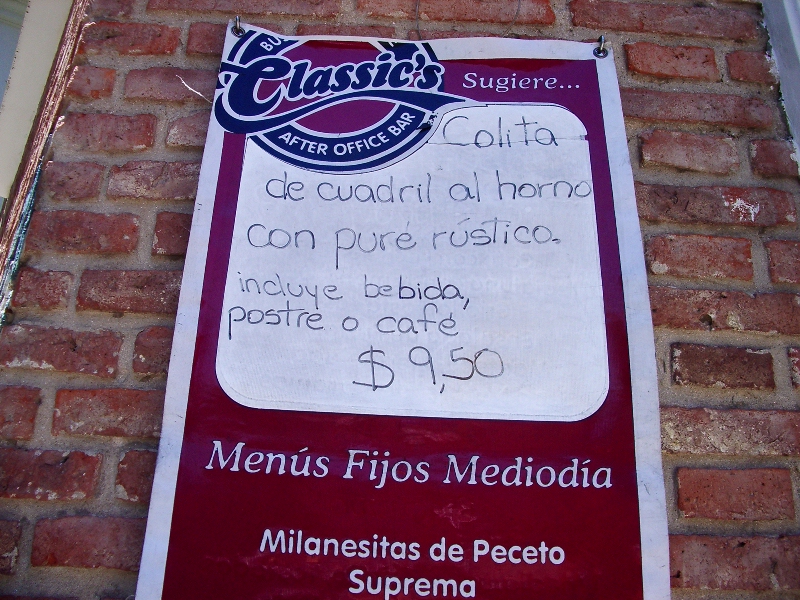 Classic's
AFTER OFFICE BAR
Sugiere...
Colita
de cuadril al horno
con puré rústico.
incluye bebida,
postre o café
$ 9,50
Menús Fijos Mediodía
Milanesitas de Peceto
Suprema